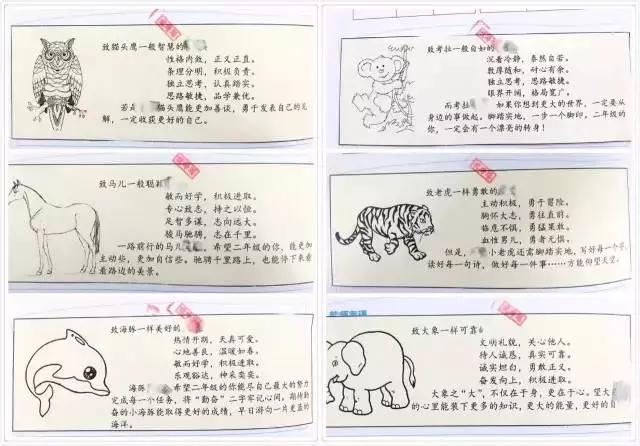 致猫头鹰一般智慧的
性格内敛,正义正直。
条理分明,积极负责。
独立思考,认真踏实。
思路敏捷,品学兼优。
若 猫头鹰能更加善谈,勇于发表自己的见
解,一定收获更好的自己。
致马儿一般聪
敏而好学,积极进取。
专心致志,持之以恒。
足智多谋,志向远大。
骏马驰骋,志在千里。
一路前行的马儿 ,希望二年级的你,能更加
主动些,更加自信些。驰骋千里路上,也能停下来看
看路边的美景。
致海豚一样美好的
热情开朗,天真可爱。
心地善良,温暖如春。
敏而好学,积极进取。
乐观豁达,神采奕奕。
海豚 希望二年级的你能尽自己最大的努力
完成每一个任务,将“勤奋”二字牢记心间。期待勤
奋的小海豚能取得更好的成绩,早日游向一片更蓝的
海洋。
致考拉一般自如的
沉着冷静,泰然自若。
敦厚随和,耐心有余。
独立思考,思路敏捷。
眼界开阔,格局宽广。
而考拉 如果你想到更大的世界,一定要从
身边的事做起。脚踏实地,一步一个脚印,二年级的
你,一定会有一个漂亮的转身!
致老虎一样勇敢的
主动积极,勇于冒险。
胸怀大志,勇往直前。
临危不惧,勇猛果敢。
血性男儿,勇者无惧。
但是, 小老虎还需脚踏实地,写好每一个字,
读好每一句诗,做好每一件事……方能仰望天空。
致大象一样可靠
文明礼貌,关心他人。
待人诚恳,真实可靠。
诚实坦白,勇敢正义。
奋发向上,积极进取。
大象之“大”,不仅在于身,更在于心。望大
的心里能装下更多的知识,更大的能量,更好的自